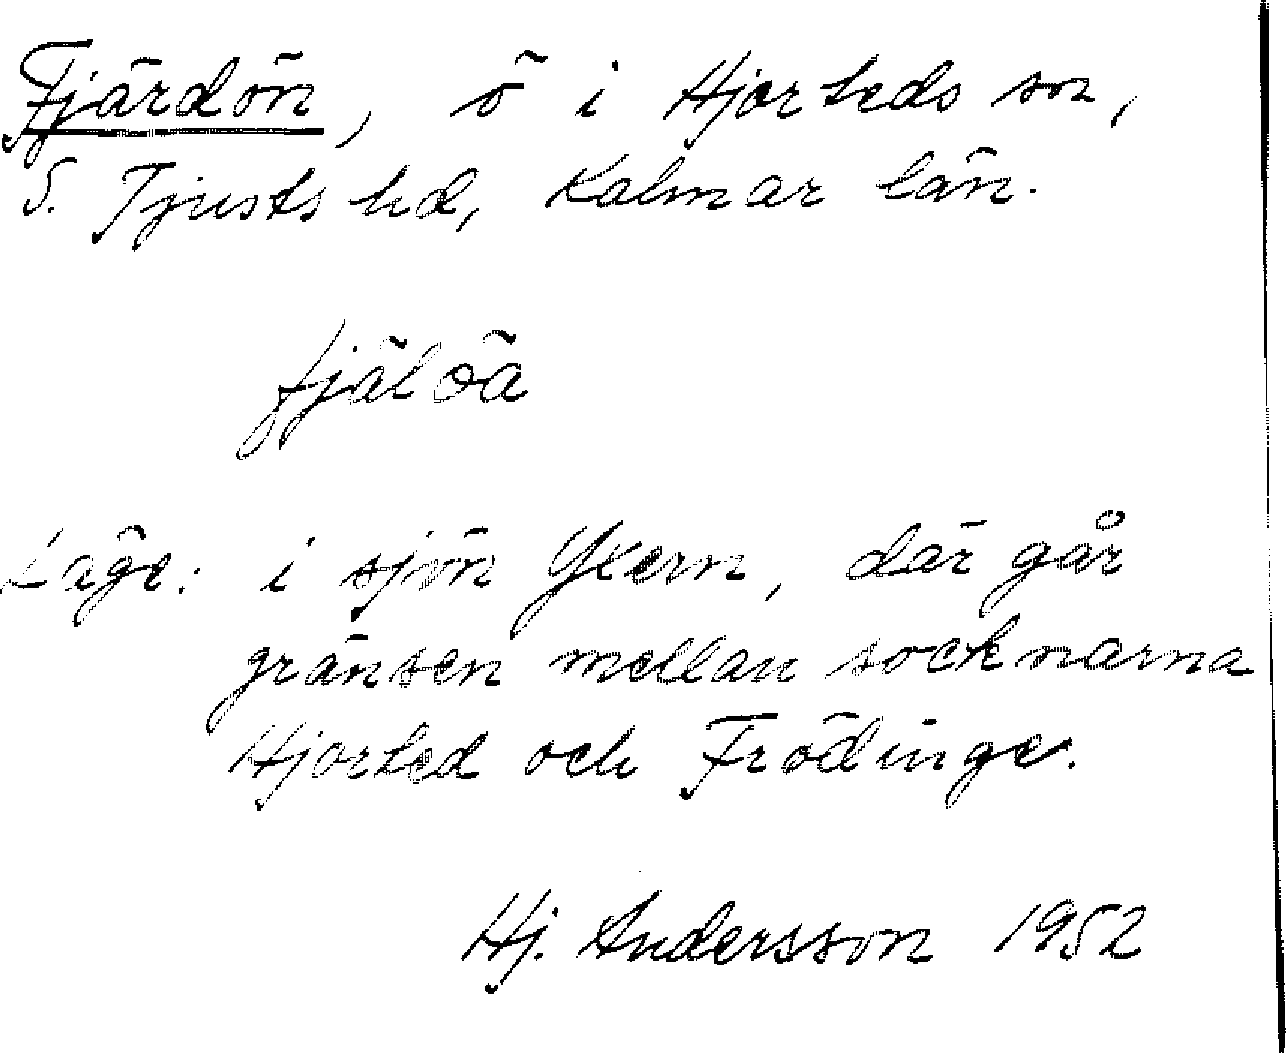 Fjärdön, ö i Hjorteds sn,
S. Tjusts hd, Kalmar län.
fjälöä
Läge: i sjön Yxern, där går
gränsen mellan socknarna
Hjorted och Frödinge.
Hj. Andersson 1952